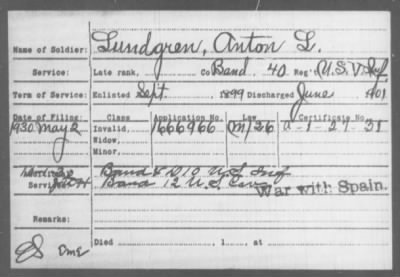 Name of Soldier: Lundgren, Anton L.
Service: Late rank, Co Band. 40 Reg't U.S.V. Inf.
Term of Service: Enlisted Sept 1899 Discharged June 1901
Date of Filing: Class Application No. Law Certificate No.
1930 May 2 Invalid, 1666966 (M) 26 A-1-27-31
Widow,
Minor,
Additional Band & D 10 U.S. Inf
Services: Band 12 U.S. Cav
War with Spain.
Remarks:
Died , 1 , at